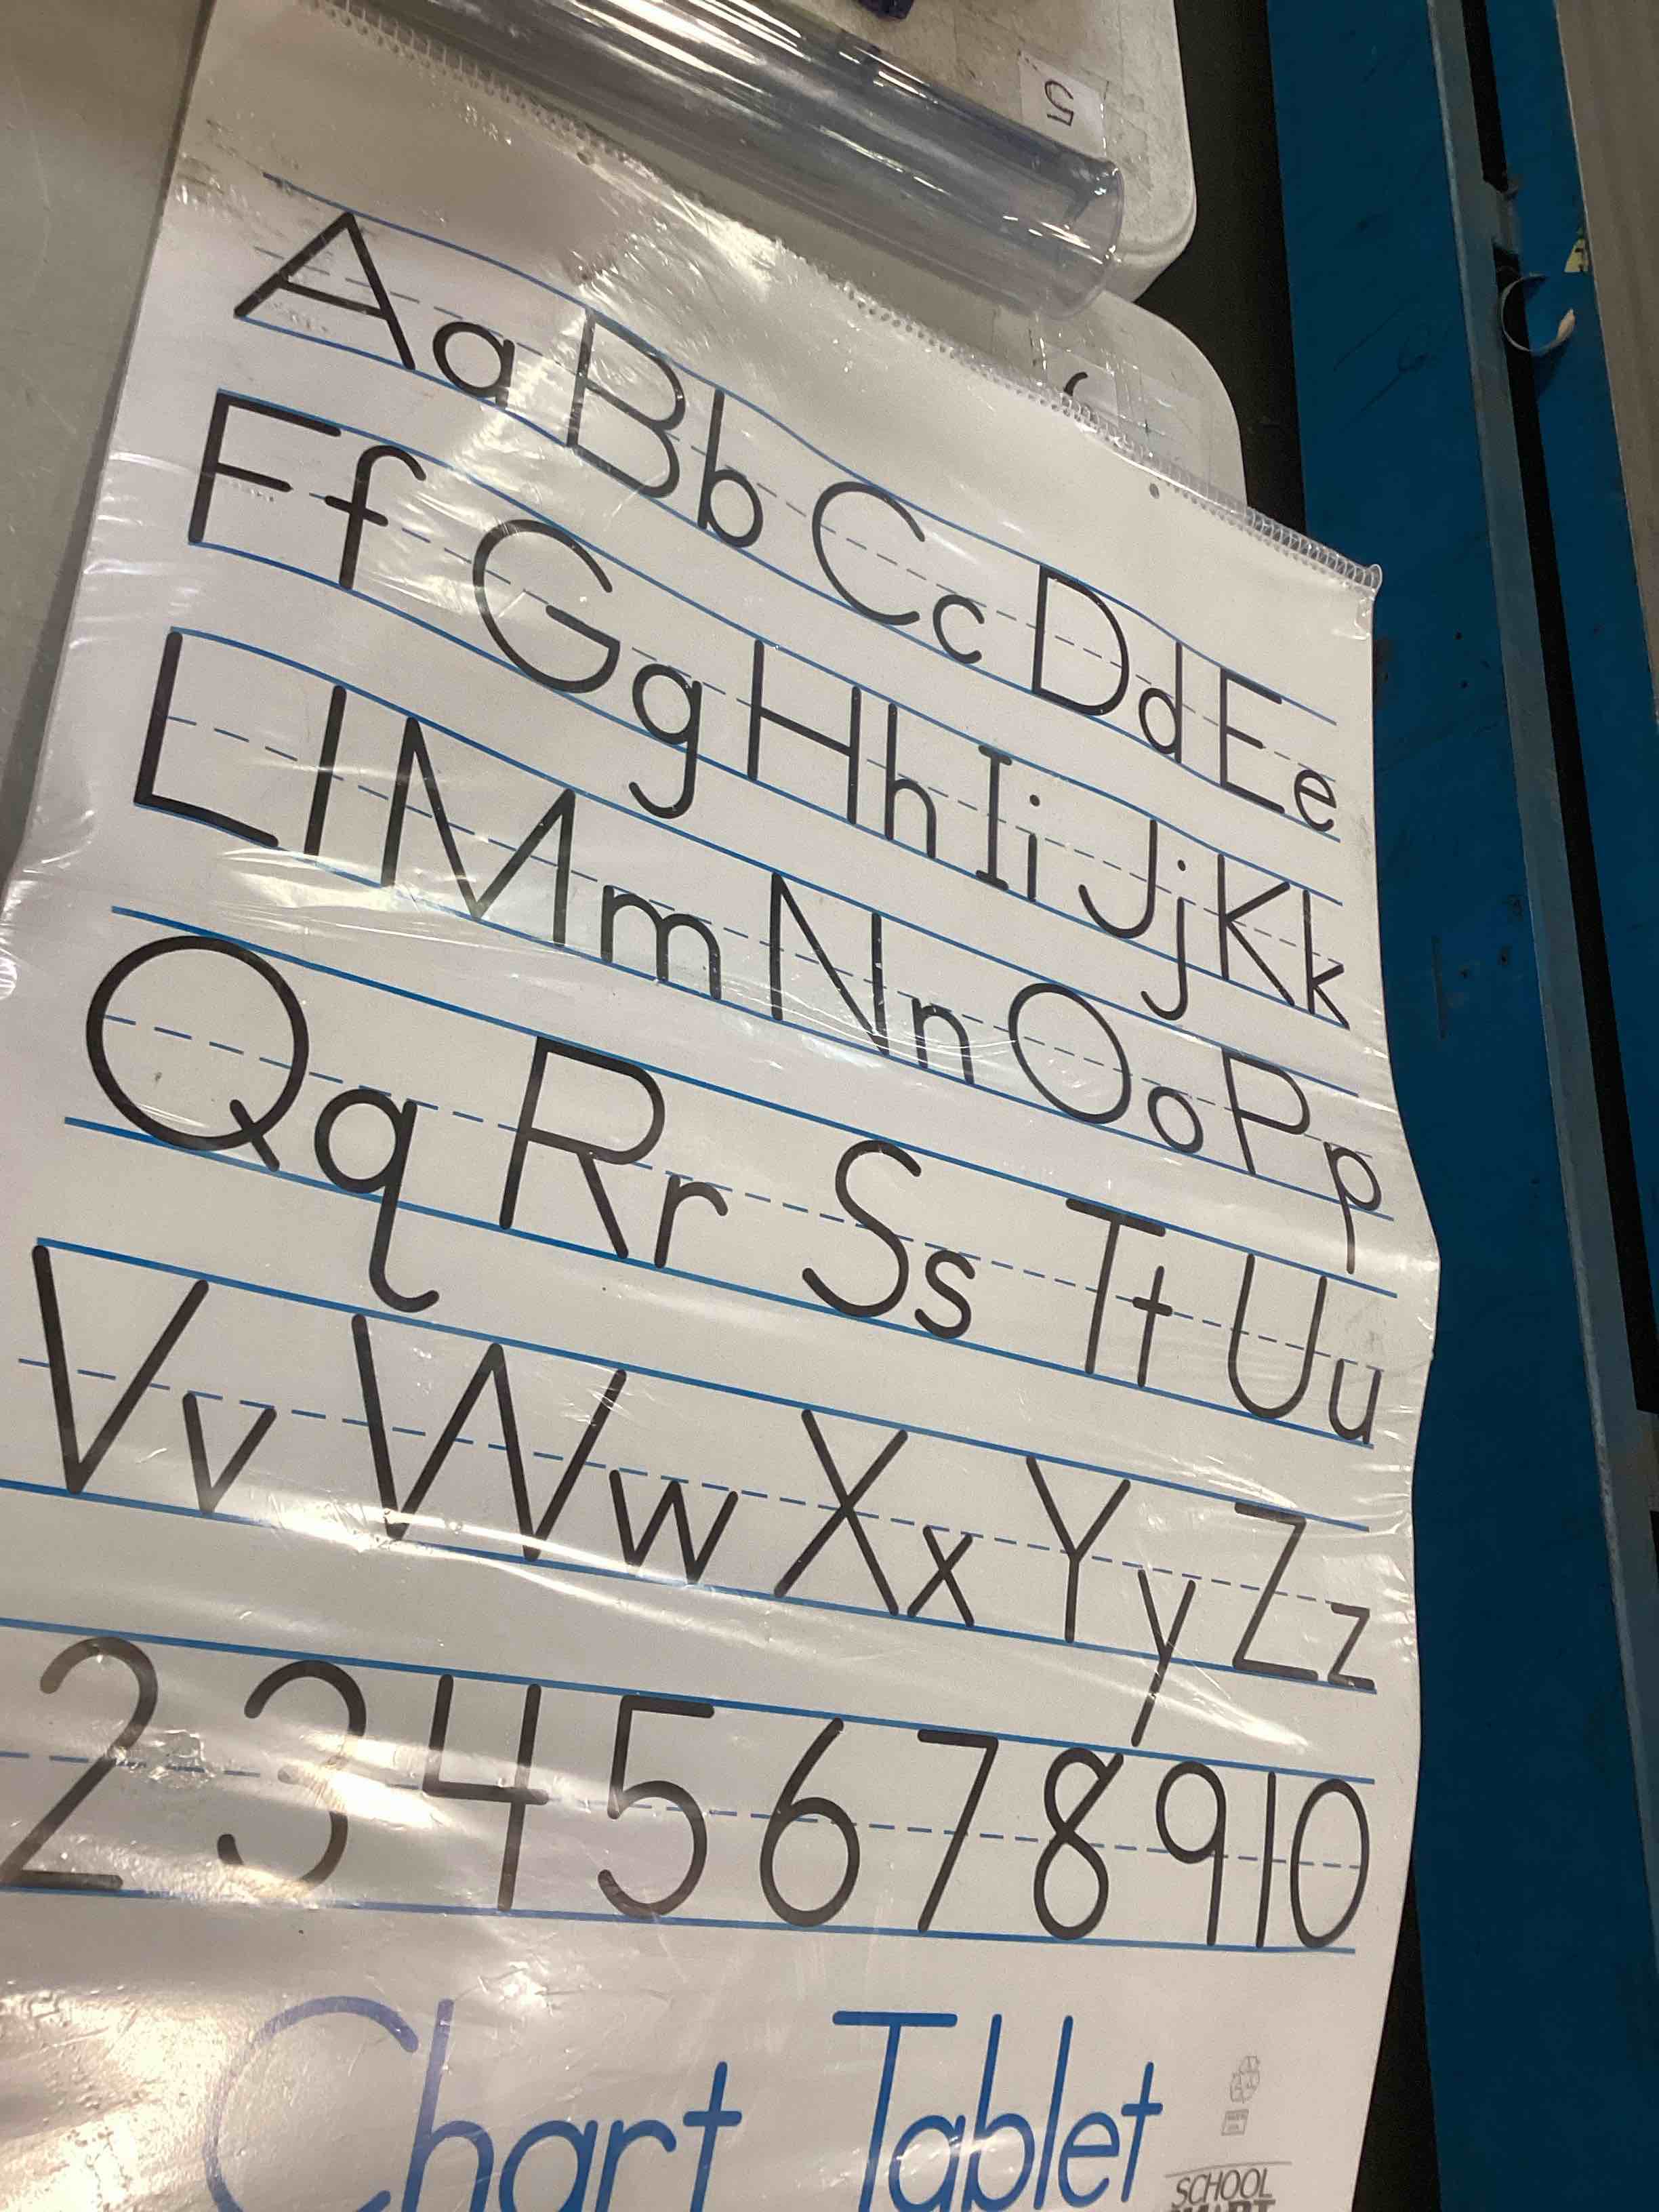 5
Aa Bb Cc Dd Ee
Ff Gg Hh Ii Jj Kk
Ll Mm Nn Oo Pp
Qq Rr Ss Tt Uu
Vv Ww Xx Yy Zz
2 3 4 5 6 7 8 9 10
Chart Tablet
SCHOOL